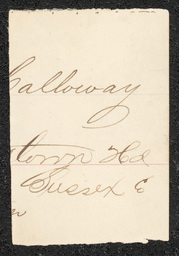 Galloway
town Hd
Sussex C